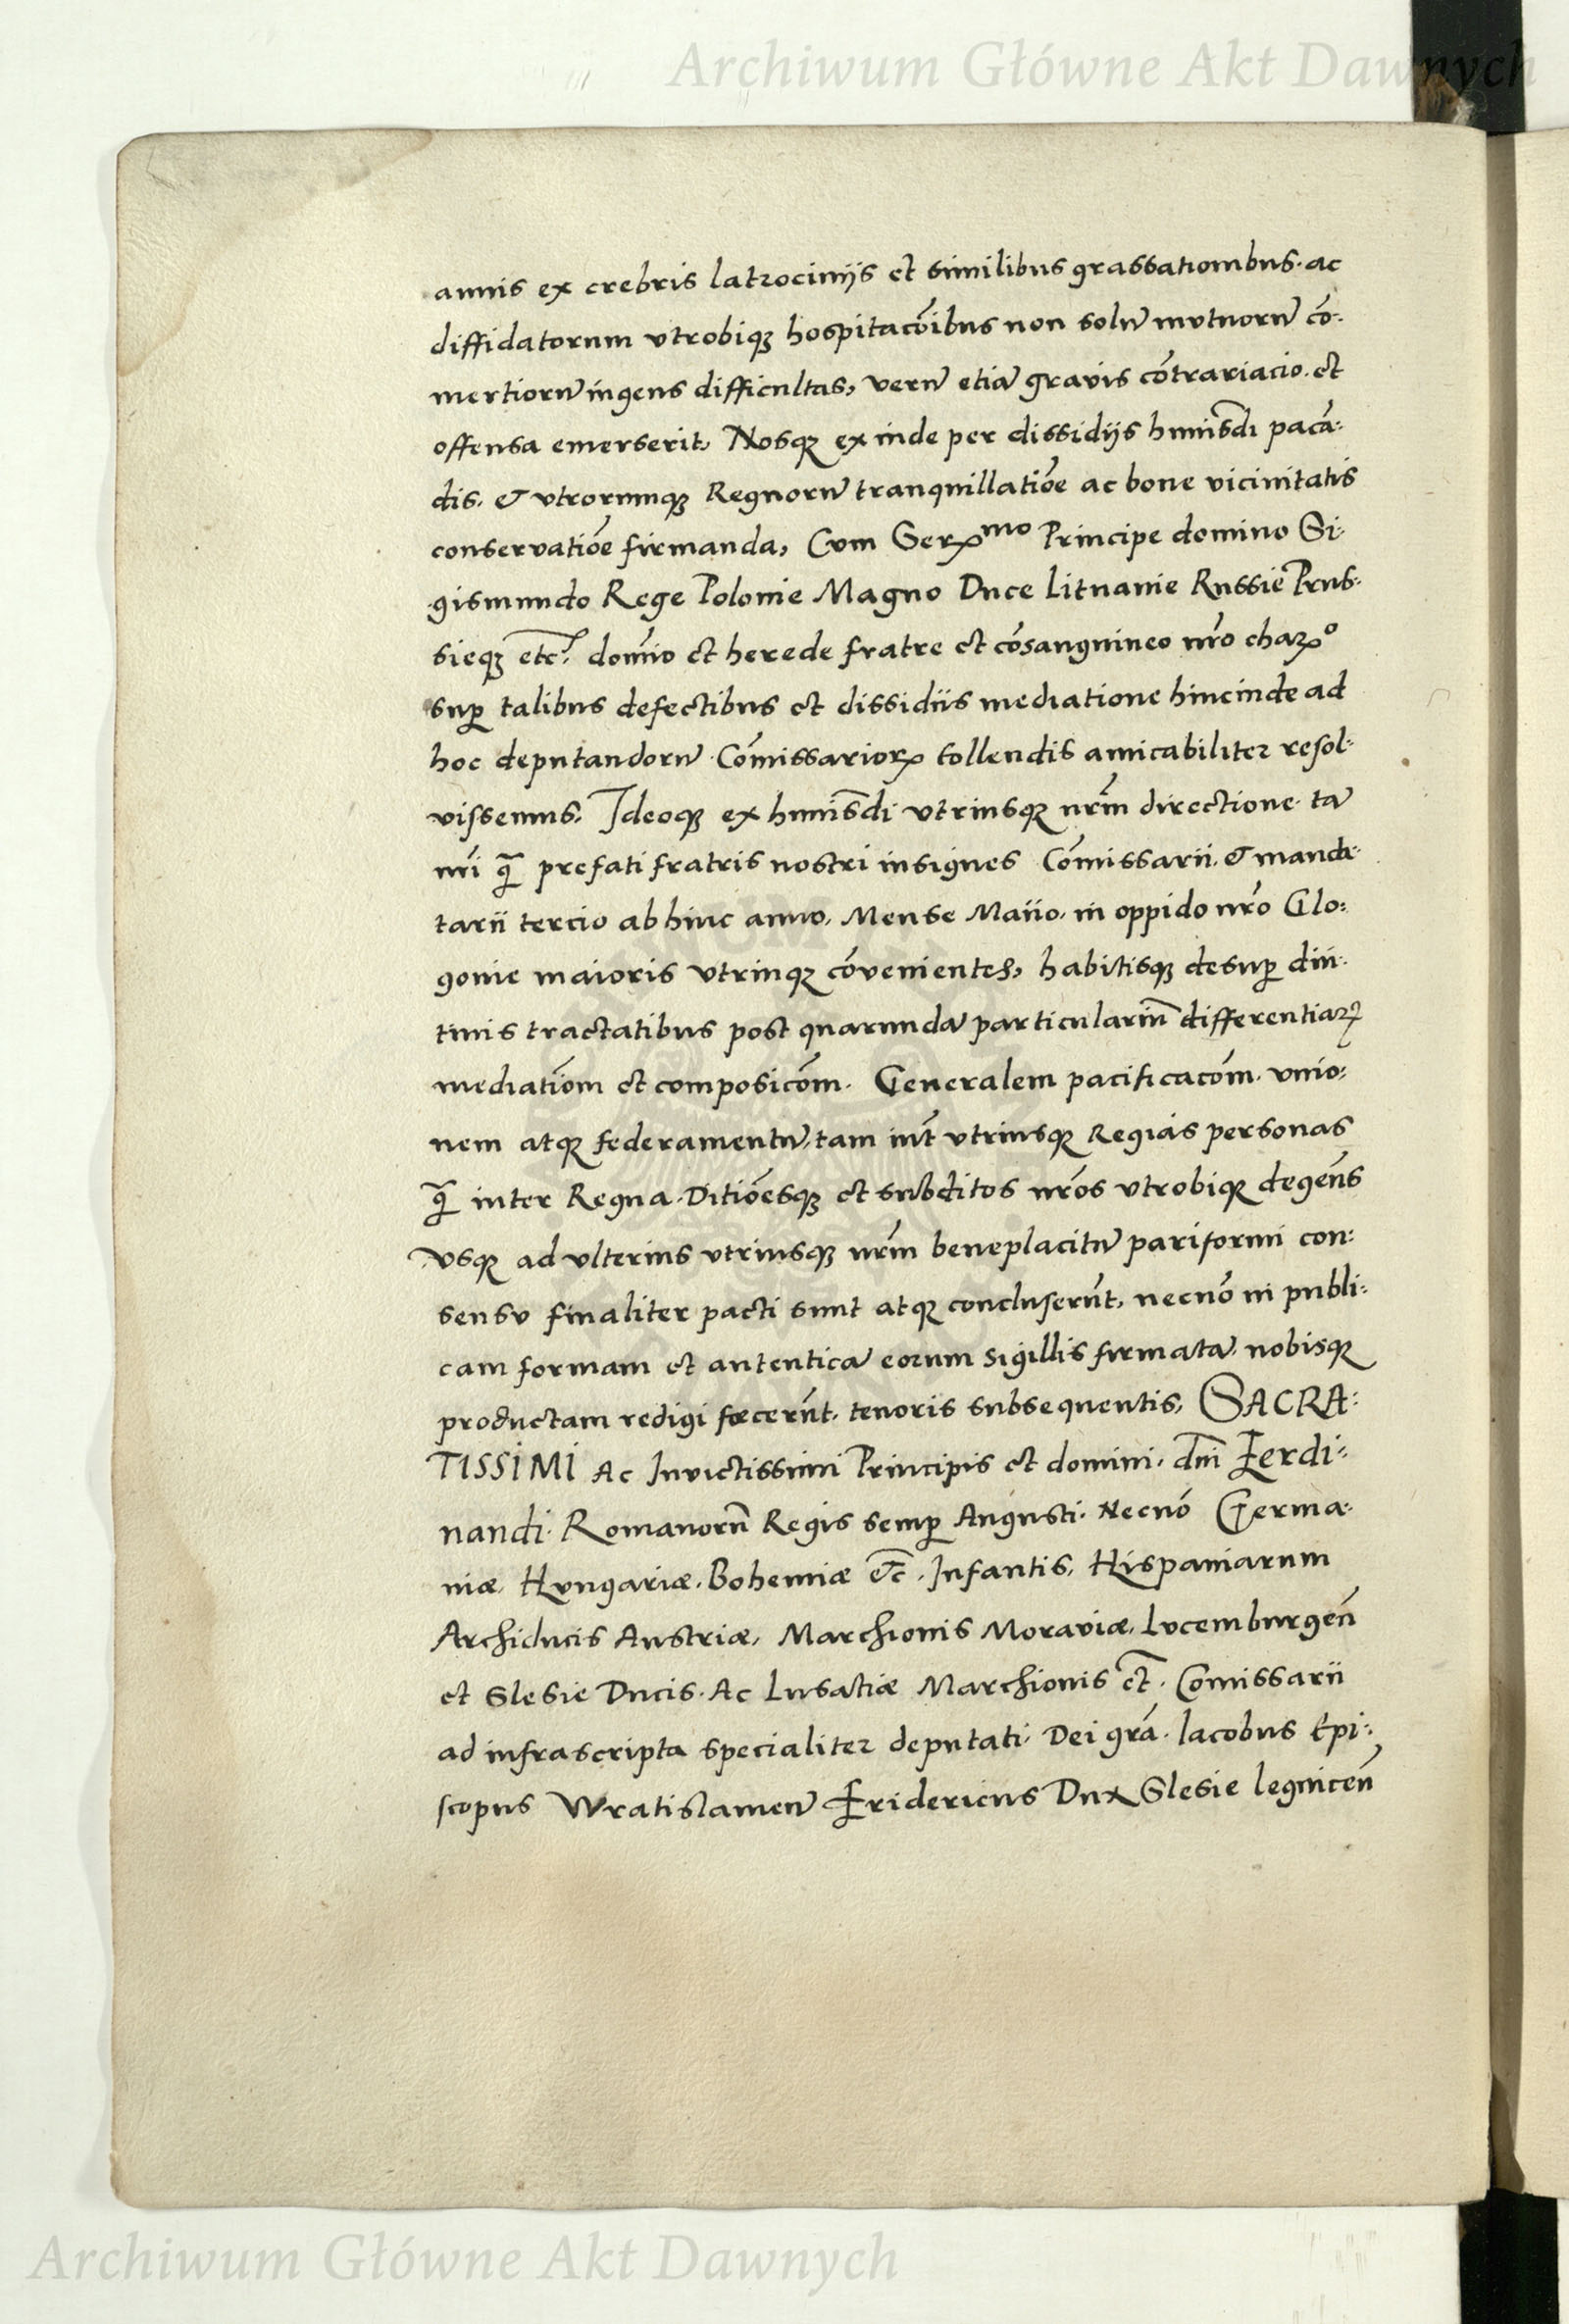 Archiwum Główne Akt Dawnych
annis ex crebris latrocinijs et similibus grassationibus. ac
diffidatorum vtrobiqꝫ hospitacōibus non solū mvtuorū cō:
mertiorū ingens difficultas, verū etiā gravis cōtrariacio. et
offensa emerserit, Nosqꝫ ex inde per dissidijs huiūsdi pacā:
dis. & vtrorumqꝫ Regnorū tranquillatiōe ac bone vicinitatis
conservatiōe firmanda, Cvm Serꝝmo Principe domino Si:
gismundo Rege Polonie Magno Duce Lituanie Russie Prus:
sieqꝫ etc̄. domīo et herede fratre et cōsanguineo nr̄o chaꝝo
suꝑ talibus defectibus et dissidiis mediatione hincinde ad
hoc deputandorū Cōmissarioꝝ tollendis amicabiliter resol:
vissemus. Ideoqꝫ ex huiūsdi vtriusqꝫ nrm̄ directione. tā
nrī q̄ prefati fratris nostri insignes Cōmissarii. & manda:
tarii tercio abhinc anno. Mense Maiio. in oppido nr̄o Glo:
gonie maioris vtrinqꝫ cōvenientes, habitisqꝫ desuꝑ diu:
tinis tractatibus post quarundā particulariū differentiaꝝ
mediatiōm et composicōm. Generalem pacificacōm. vnio:
nem atqꝫ federamentū, tam int̄ vtriusqꝫ Regias personas
q̄ inter Regna. Ditiōesqꝫ et subditos nr̄os vtrobiqꝫ degen̄s
vsqꝫ ad vlterius vtriusqꝫ nrm̄ beneplacitū pariformi con:
sensv finaliter pacti sunt atqꝫ concluserūt, necnō in publi:
cam formam et autenticā eorum sigillis firmatā. nobisqꝫ
productam redigi fœcerūt. tenoris subsequentis. SACRA:
TISSIMI Ac Invictissimi Principis et domini. dn̄i Ferdi:
nandi. Romanorū Regis semꝑ Augusti. Necnō Germa:
niæ. Hvngariæ. Bohemiæ &c̄. Infantis. Hispaniarum
Archiducis Austriæ. Marchionis Moraviæ. Lvcemburgen̄
et Slesie Ducis. Ac Lusatiæ Marchionis et̄. Comissarii
ad infrascripta specialiter deputati. Dei grā. Iacobus Epi:
scopus Wratislamen̄ Fridericus Dux Slesie legnicen̄
Archiwum Główne Akt Dawnych